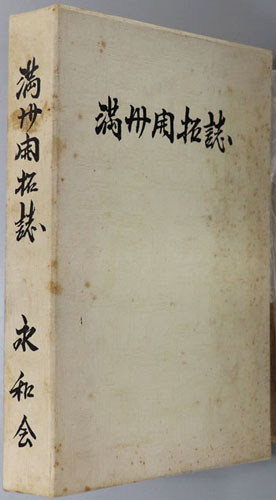 満州開拓誌
永和会
満州開拓誌